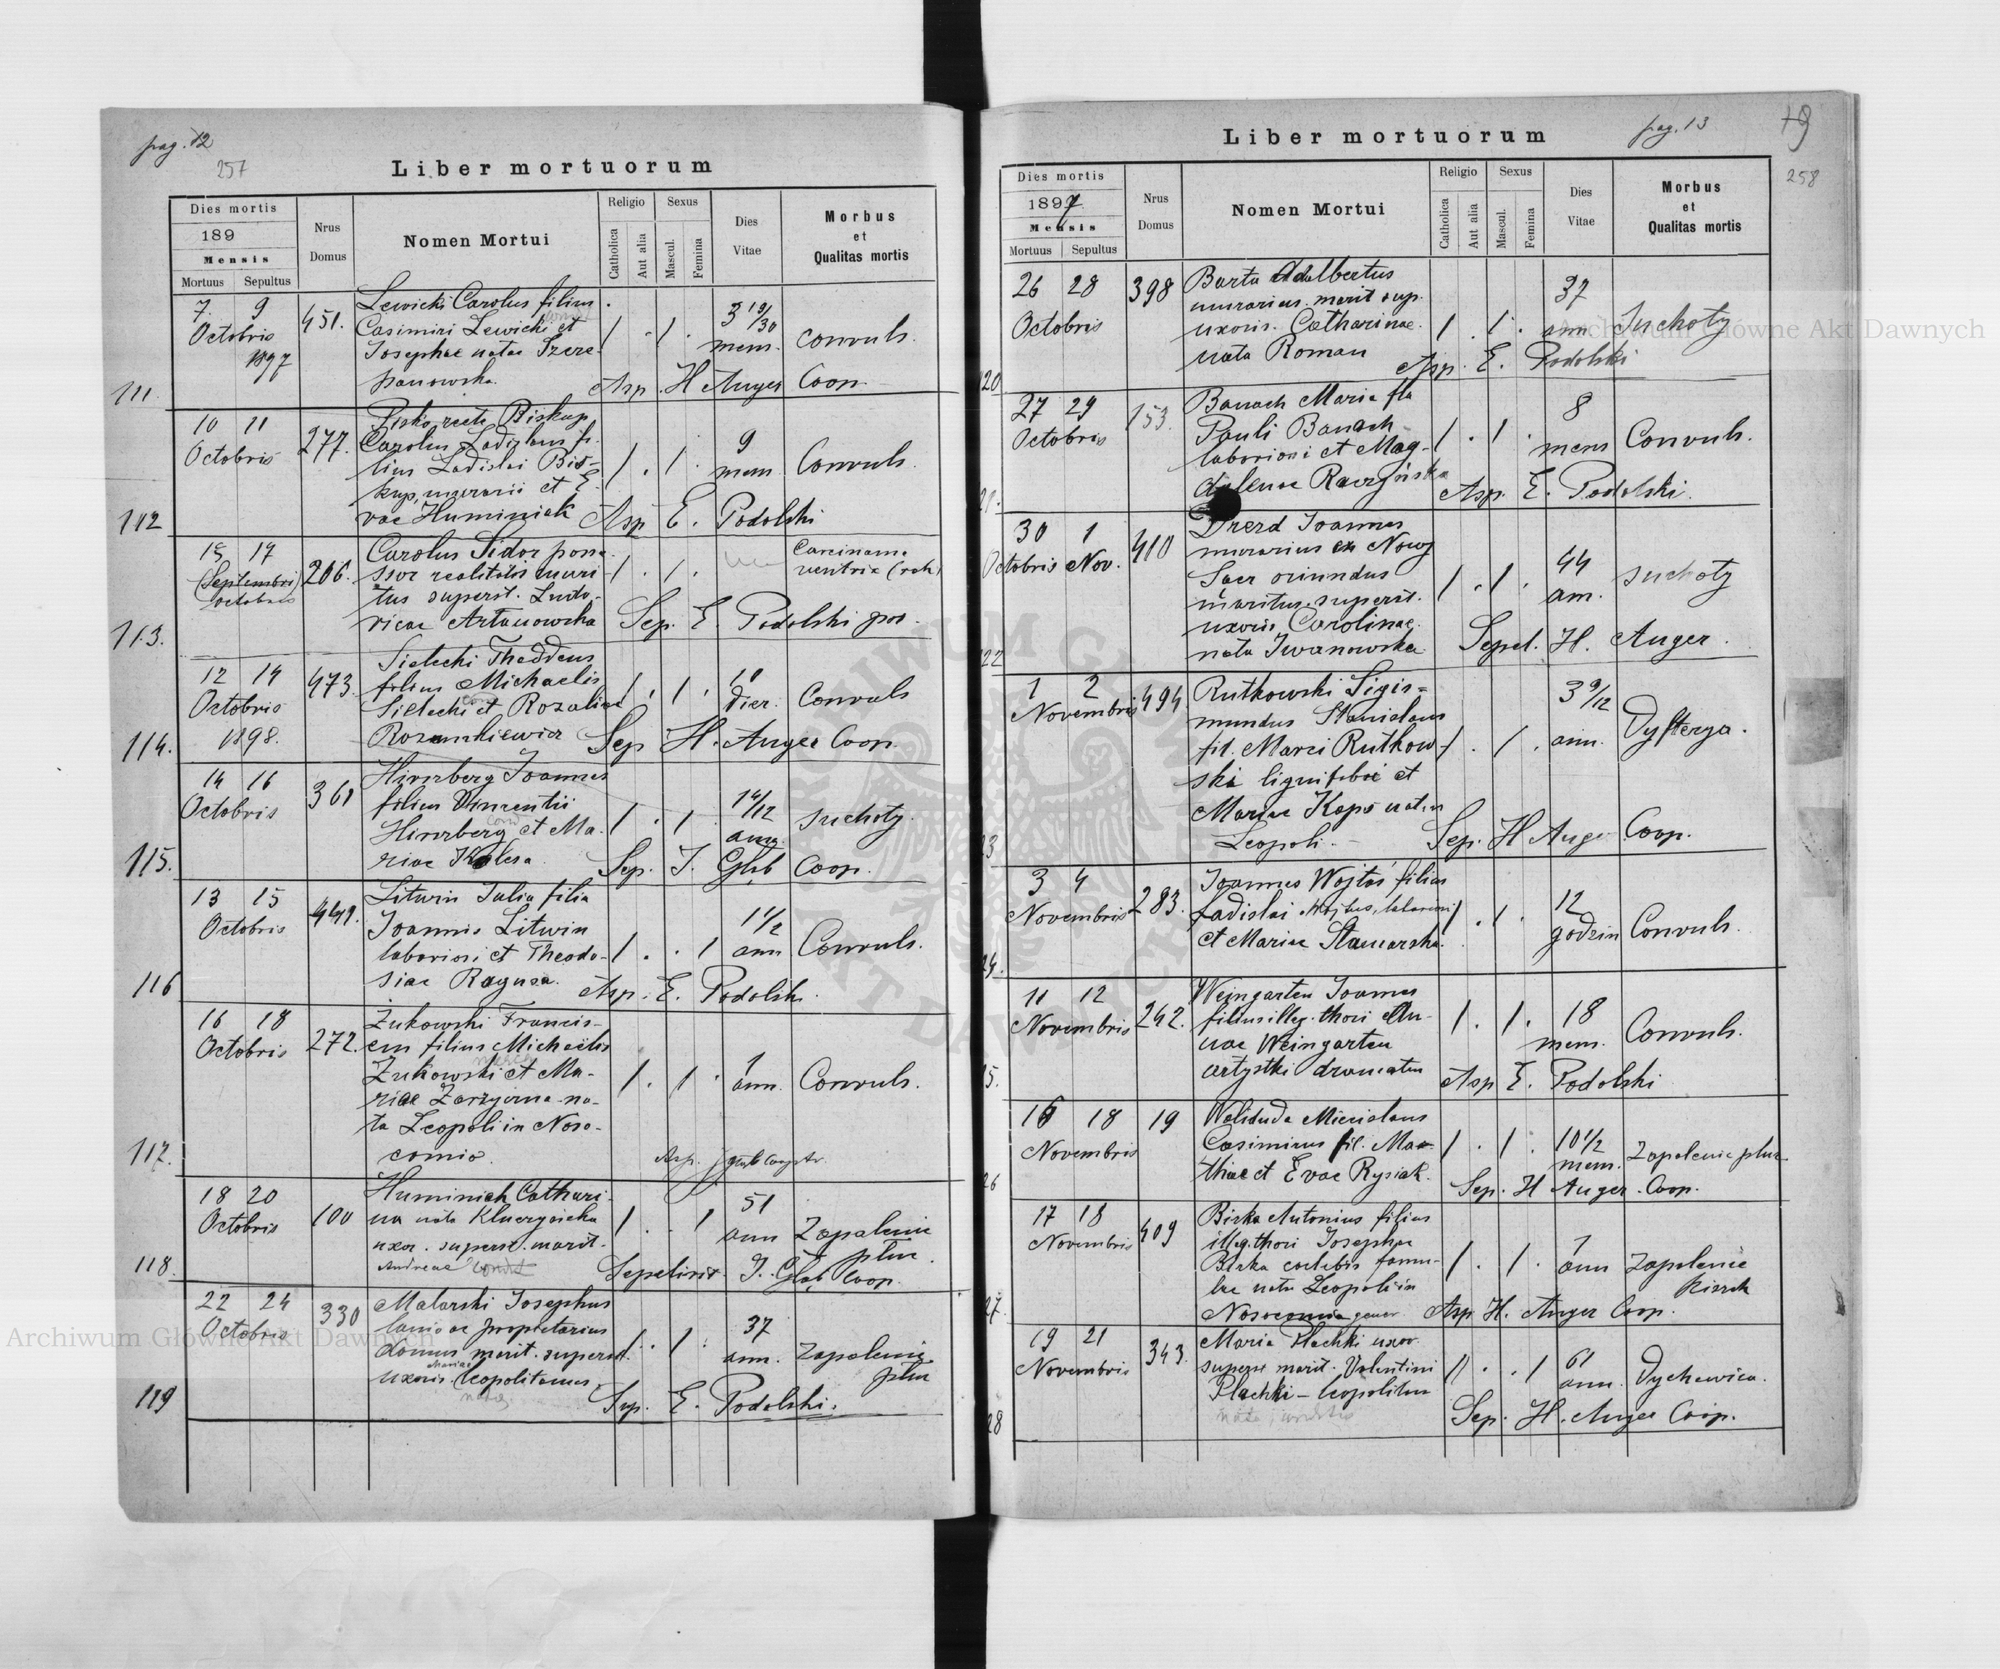 pag. 12
257
Liber mortuorum
Dies mortis
189
Mensis
Mortuus Sepultus
Nrus Domus
Nomen Mortui
Religio
Catholica
Aut alia
Sexus
Mascul.
Femina
Dies Vitae
Morbus et Qualitas mortis
111
7. 9
Octobris
1897
451.
Lewicki Carolus filius
Casimiri Lewicki et
Josephae natae Szcze-
panowska
1 . 1 .
3 19/30
mens.
Convuls.
Asp. H Anger Coop.
112
10 11
Octobris
277.
recte Biskup
Carolus Ladislaus fi-
lius Ladislai Bis-
kup, murarii et E-
vae Huminiak
1 . 1 .
9
mens.
Convuls.
Asp E. Podolski
113.
15 17
(Septembri)
Octobris
206.
Carolus Sidor posse-
ssor realitatis mari-
tus superst. Ludo-
vicae Artanowska
1 . 1 .
Carcinoma
ventric (rak)
Sep. E. Podolski
114.
12 14
Octobris
1898.
473.
Sielecki Thaddeus
filius Michaelis
Sielecki et Rosaliae
1 . 1 .
10
dier.
Convuls
Sep H. Anger Coop.
115.
14 16
Octobris
361
Joannes
filius Vincentii
et Ma-
riae
1 . 1
14/12
ann.
suchoty.
Sep. J. Głąb Coop.
116
13 15
Octobris
449.
Litwin Julia filia
Joannis Litwin
laboriosi et Theodo-
siae Ragusa.
1 . . 1
1 1/2
ann
Convuls.
Asp. E. Podolski.
117.
16 18
Octobris
272.
Żukowski Francis-
cus filius Michaëlis
Żukowski et Ma-
riae na-
ta Leopoli in Noso-
comio.
1 . 1 .
1
ann.
Convuls.
Asp. J Głąb
118.
18 20
Octobris
100
Huminiak Cathari-
na nata
uxor. superst. marit.
Andreae
1 . . 1
51
ann
Zapalenie
płuc
Sepelivit J. Głąb Coop.
119
22 24
Octobris
330
Malarski Josephus
lanio ac proprietarius
domus marit. superst.
Mariae
uxoris. Leopolitanus.
nata
1 . 1 .
37
ann.
Zapalenie
płuc
Sep. E. Podolski.
pag. 13
19
258
Liber mortuorum
Dies mortis
1897
Mensis
Mortuus Sepultus
Nrus Domus
Nomen Mortui
Religio
Catholica
Aut alia
Sexus
Mascul.
Femina
Dies Vitae
Morbus et Qualitas mortis
20
26 28
Octobris
398
Barta Adalbertus
murarius. marit sup.
uxoris. Catharinae.
nata Roman
1 . 1 .
37
ann
Suchoty
Asp. E. Podolski
21.
27 29
Octobris
153.
Banach Maria fla
Pauli Banach
laboriosi et Mag-
dalenae
1 . 1 .
8
mens
Convuls.
Asp. E. Podolski.
22
30 1
Octobris Nov.
410
Joannes
murarius ex Nowy
Sącz oriundus
maritus superst.
uxoris Carolinae.
nata Iwanowska
1 . 1 .
44
ann.
suchoty
Sepel. H. Anger.
23
1 2
Novembris
494
Rutkowski Sigis-
mundus Stanislaus
fil. Marci Rutkow-
ski lignifabri et
Mariae Kaps natus
Leopoli.
1 . 1 .
3 9/12
ann.
Dyfterya.
Sep. H Anger Coop.
24.
3 4
Novembris
283.
Joannes Wojtoś filius
Ladislai Wojtos, laboriosi
et Mariae
1 . 1 .
12
godzin
Convuls.
25.
11 12
Novembris
242.
Weingarten Joannes
filius illeg. thori An-
nae Weingarten
artystki dramaten
1 . 1 .
18
mens.
Convuls.
Asp E. Podolski
26
16 18
Novembris
19
Miecislaus
Casimirus fil. Ma-
thiae et Evae Rysiak.
1 . 1 .
10 1/2
mens.
Zapalenie płuc
Sep. H Anger. Coop.
27.
17 18
Novembris
409
Birka Antonius filius
illeg. thori Josephae
Birka coelebis famu-
lae nata Leopoli in
Nosocomio gener
1 . 1 .
1
ann
Zapalenie
kiszek
Asp H. Anger Coop.
28
19 21
Novembris
343.
Maria Plachki uxor
superst marit. Valentini
Plachki — Leopolitan
nata
1 . . 1
61
ann.
Dychawica.
Sep. H. Anger Coop.
Archiwum Główne Akt Dawnych
Archiwum Główne Akt Dawnych
ARCHIWUM GŁÓWNE AKT DAWNYCH